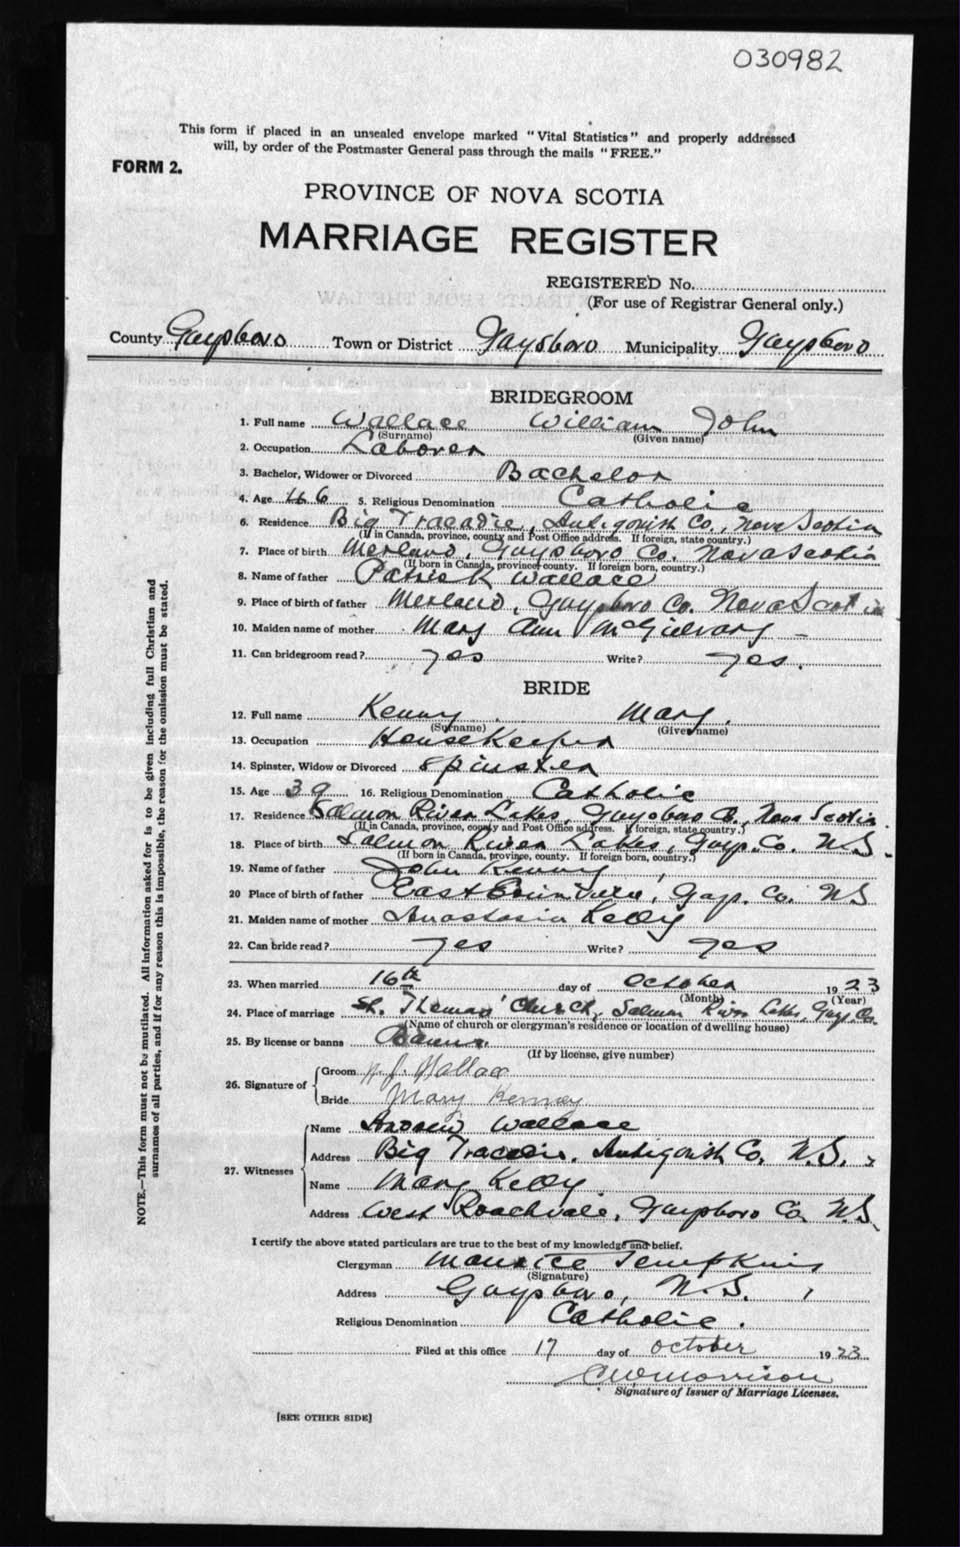 030982
This form if placed in an unsealed envelope marked "Vital Statistics" and properly addressed
will, by order of the Postmaster General pass through the mails "FREE."
FORM 2.
PROVINCE OF NOVA SCOTIA
MARRIAGE REGISTER
REGISTERED No.
(For use of Registrar General only.)
County Guysboro Town or District Guysboro Municipality Guysboro
BRIDEGROOM
1. Full name Wallace William John
(Surname) (Given name)
2. Occupation Laborer
3. Bachelor, Widower or Divorced Bachelor
4. Age 46 5. Religious Denomination Catholic
6. Residence Big Tracadie, Antigonish Co., Nova Scotia
(If in Canada, province, county and Post Office address. If foreign, state country.)
7. Place of birth Merland, Guysboro Co. Nova Scotia
(If born in Canada, province, county. If foreign born, country.)
8. Name of father Patrick Wallace
9. Place of birth of father Merland, Guysboro Co. Nova Scotia
10. Maiden name of mother Mary Ann McGillvary
11. Can bridegroom read? yes Write? yes.
BRIDE
12. Full name Kenny Mary.
(Surname) (Given name)
13. Occupation Housekeeper
14. Spinster, Widow or Divorced Spinster
15. Age 39 16. Religious Denomination Catholic
17. Residence Salmon River Lakes, Guysboro Co., Nova Scotia.
(If in Canada, province, county and Post Office address. If foreign, state country.)
18. Place of birth Salmon River Lakes, Guys. Co. N.S.
(If born in Canada, province, county. If foreign born, country.)
19. Name of father John Kenny
20 Place of birth of father East Guys. Co. NS
21. Maiden name of mother Anastasia Kelly
22. Can bride read? yes Write? yes
23. When married 16th day of October 1923
(Month) (Year)
24. Place of marriage St. Thomas' Church, Salmon River Lakes, Guy. Co.
(Name of church or clergyman's residence or location of dwelling house)
25. By license or banns Banns.
(If by license, give number)
26. Signature of Groom W. J. Wallace
Bride Mary Kenney
27. Witnesses Name Andrew Wallace
Address Big Tracadie, Antigonish Co. N.S.
Name Mary Kelly
Address West Roachvale, Guysboro Co. N.S.
I certify the above stated particulars are true to the best of my knowledge and belief.
Clergyman Maurice Tompkins
(Signature)
Address Guysboro, N.S.
Religious Denomination Catholic.
Filed at this office 17 day of October 1923
C W Morrison
Signature of Issuer of Marriage Licenses.
[SEE OTHER SIDE]
NOTE.—This form must not be mutilated. All information asked for is to be given including full Christian and
surnames of all parties, and if for any reason this is impossible, the reason for the omission must be stated.